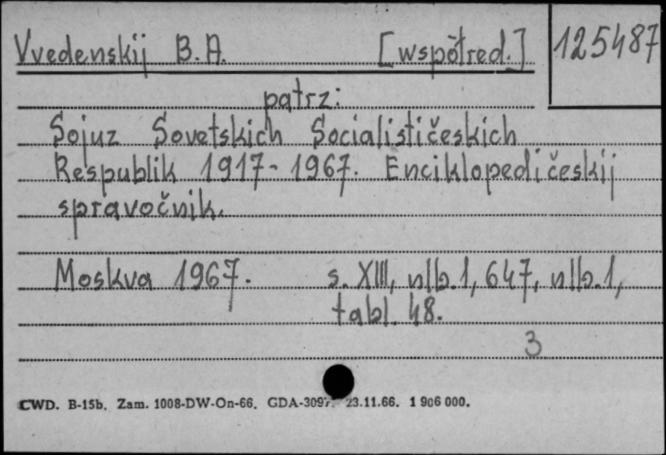 Vvedenskij B.A. [współred.] 125487
patrz:
Sojuz Sovetskich Socialističeskich
Respublik 1917-1967. Enciklopedičeskij
spravočnik.
Moskva 1967. s. XIII, nlb.1, 647, nlb.1,
tabl. 48.
3
CWD. B-15b. Zam. 1008-DW-On-66. GDA-309 23.11.66. 1 906 000.